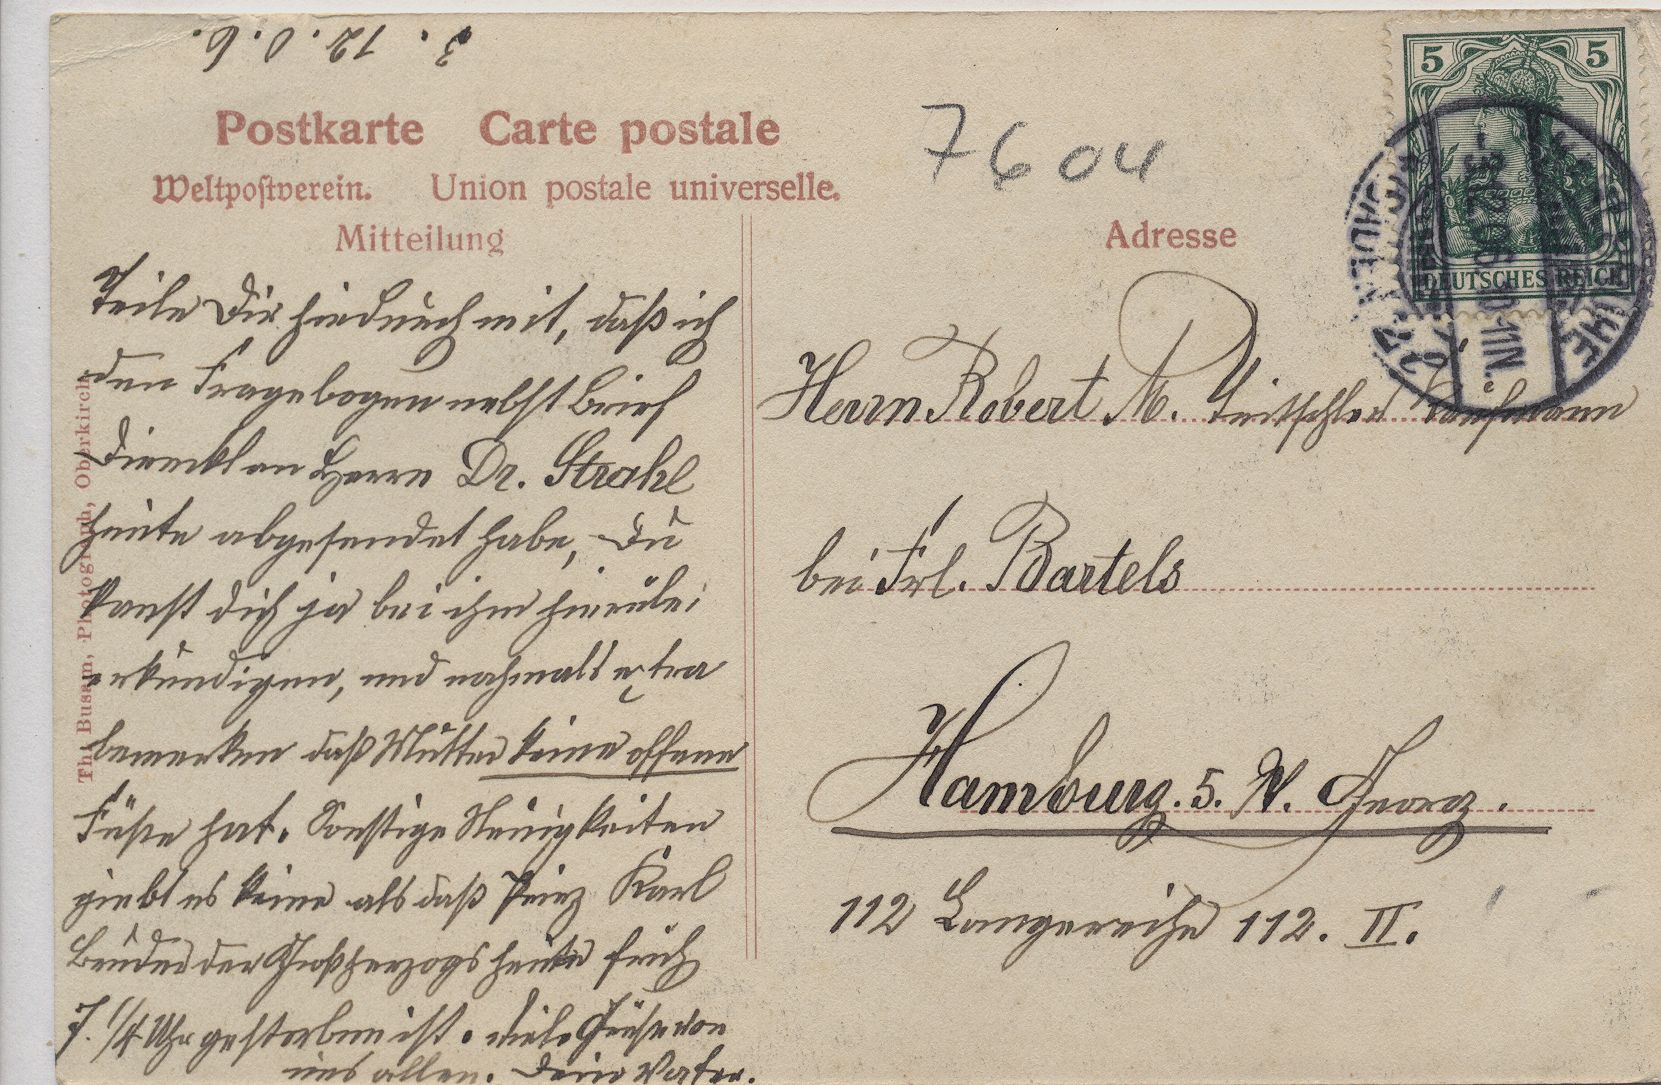 3. 12. 0. 6.
Postkarte Carte postale
Weltpostverein. Union postale universelle.
Mitteilung
Teile Dir hiedurch mit, daß ich
den Fragebogen nebst Brief
Direckt an Herrn Dr. Strahl
heute abgesendet habe, Du
kanst dich ja bei ihm hierüber
erkundigen, und nochmals extra
bemerken daß Mutter keine offene
Füße hat. Sonstige Neuigkeiten
giebt es keine als daß Prinz Karl
Bruder der Großherzogs heute früh
7. 1/4 Uhr gestorben ist. Viele Grüße von
uns allen. Dein Vater.
Th. Busam, Photograph, Oberkirch
7604
5 5
DEUTSCHES REICH
KARLSRUHE
(BADEN)
3.12.06. 10-11N.
Adresse
Herrn Robert M. Kaufmann
bei Frl. Bartels
Hamburg. 5. St. Georg.
112 Langereihe 112. II.